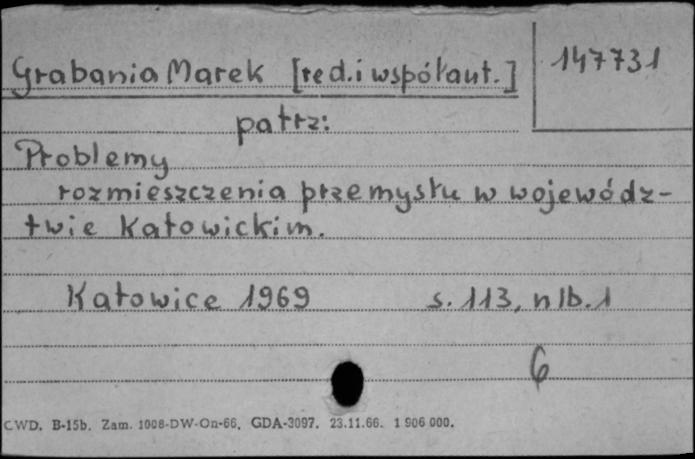 Grabania Marek [red. i współaut.]
147731
patrz:
Problemy
rozmieszczenia przemysłu w wojewódz-
twie Katowickim.
Katowice 1969 s. 113, nlb. 1
6
CWD. B-15b. Zam. 1008-DW-On-66. GDA-3097. 23.11.66. 1 906 000.